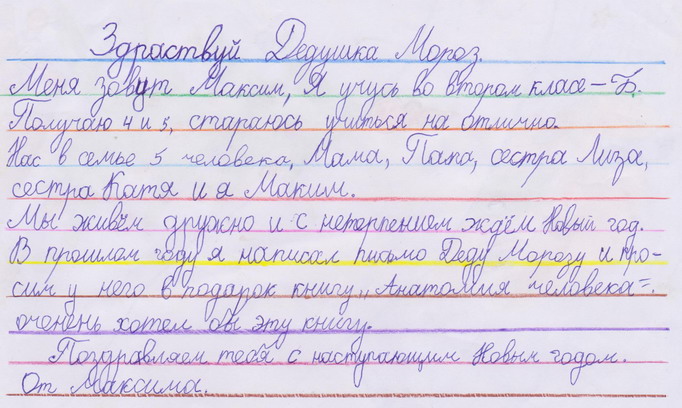 Здраствуй Дедушка Мороз.
Меня зовут Максим, Я учусь во втором класе-Б.
Получаю 4 и 5, стараюсь учиться на отлично.
Нас в семье 5 человека, Мама, Папа, сестра Лиза,
сестра Катя и я Маким.
Мы живём дружно и с нетерпением ждём Новый год.
В прошлом году я написал письмо Деду Морозу и про-
сим у него в подарок книгу „Анатомия человека".
оченень хотел бы эту книгу.
Поздравляем тебя с наступающим Новым годом.
От Максима.